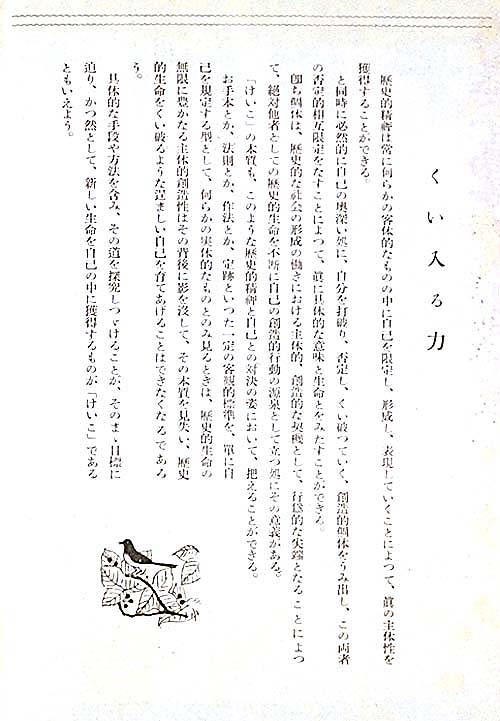 くい入る力
歴史的精神は常に何らかの客体的なものの中に自己を限定し、形成し、表現していくことによつて、眞の主体性を
獲得することができる。
と同時に必然的に自己の奥深い処に、自分を打破り、否定し、くい破つていく、創造的個体をうみ出し、この両者
の否定的相互限定をなすことによつて、眞に具体的な意味と生命とをみたすことができる。
卽ち個体は、歴史的な社会の形成の働きにおける主体的、創造的な契機として、行爲的な尖端となることによつ
て、絶対他者としての歴史的生命を不断に自己の創造的行動の源泉として立つ処にその意義がある。
「けいこ」の本質も、このような歴史的精神と自己との対決の姿において、把えることができる。
お手本とか、法則とか、作法とか、定跡といつた一定の客観的標準を、單に自
己を規定する型として、何らかの実体的なものとのみ見るときは、歴史的生命の
無限に豊かなる主体的創造性はその背後に影を沒して、その本質を見失い、歴史
的生命をくい破るような逞ましい自己を育てあげることはできなくなるであろ
う。
具体的な手段や方法を含み、その道を探究しつゞけることが、そのまゝ目標に
迫り、かつ然として、新しい生命を自己の中に獲得するものが「けいこ」である
ともいえよう。